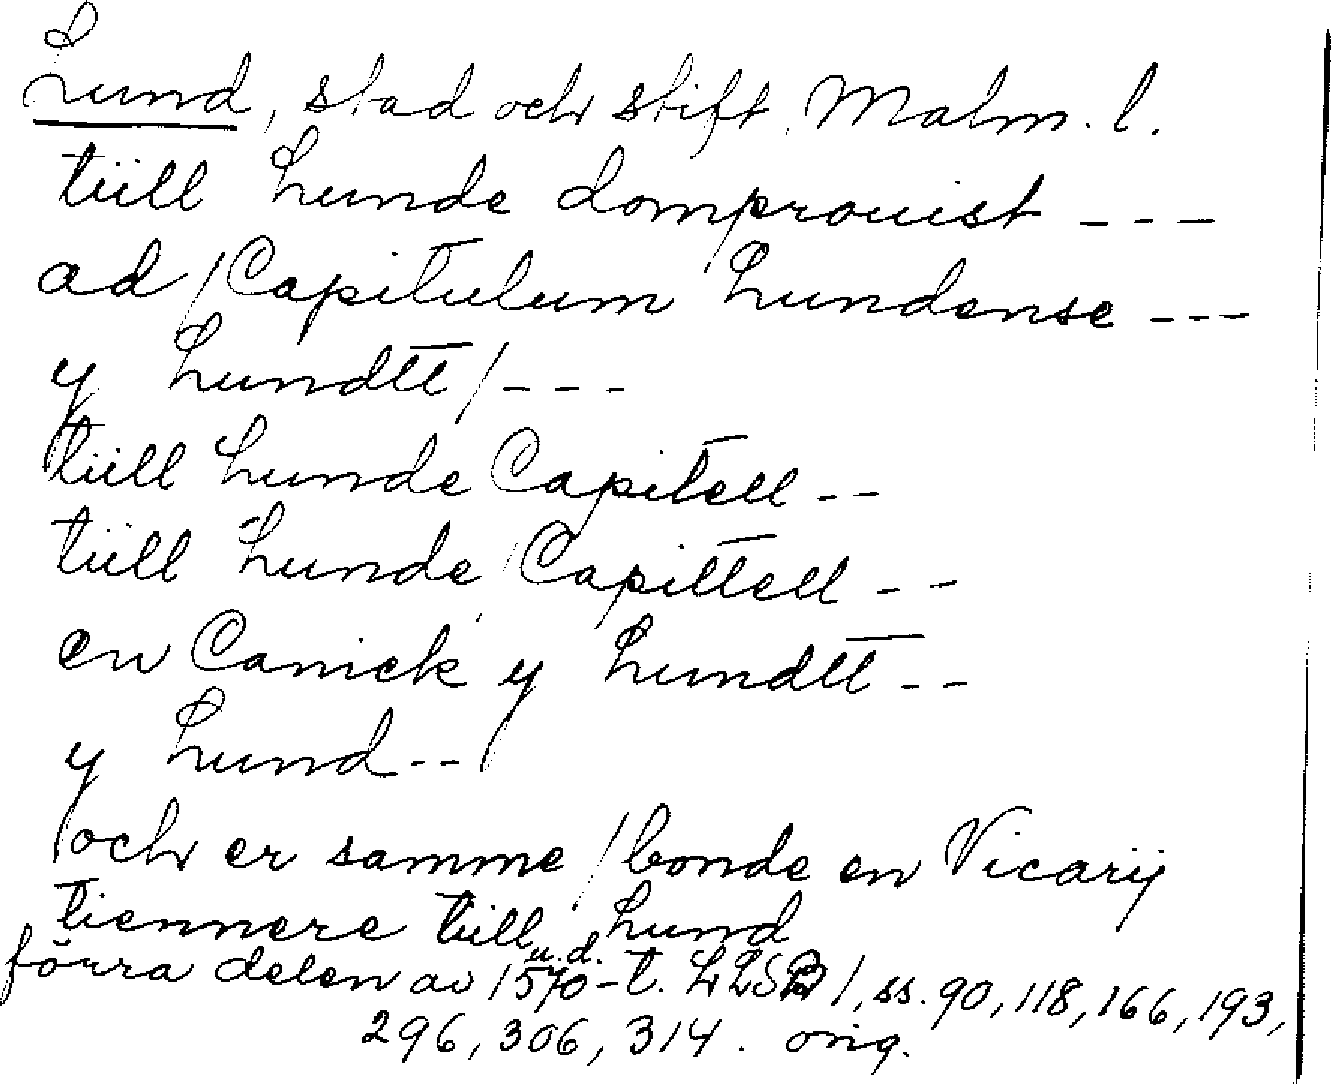 Lund, stad och stift. Malm. l.
tiill Lunde domprouist ---
ad / Capitulum Lundense ---
y Lundtt / ---
tiill Lunde Capitell --
tiill Lunde / Capittell --
en Canick y Lundtt --
y Lund --
och er samme / bonde en Vicarij
tiennere tiill Lund
u.d.
förra delen av 1570-t. LLSB 1, ss. 90, 118, 166, 193,
296, 306, 314. orig.